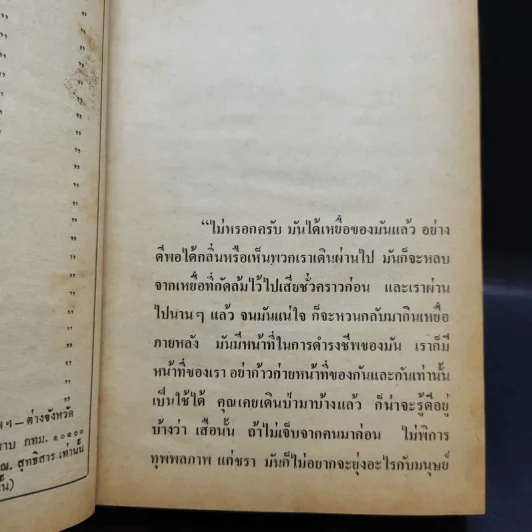 ”
”
”
”
”
”
”
”
”
”
”
”
”
”
”
”
”
”
ฯ–ต่างจังหวัด
าบ กทม. ๑๐๑๐๐
ณ. สุทธิสาร เท่านั้น
ั้น)
“ไม่หรอกครับ มันได้เหยื่อของมันแล้ว อย่าง
ดีพอได้กลิ่นหรือเห็นพวกเราเดินผ่านไป มันก็จะหลบ
จากเหยื่อที่กัดล้มไว้ไปเสียชั่วคราวก่อน และเราผ่าน
ไปนานๆ แล้ว จนมันแน่ใจ ก็จะหวนกลับมากินเหยื่อ
ภายหลัง มันมีหน้าที่ในการดำรงชีพของมัน เราก็มี
หน้าที่ของเรา อย่าก้าวก่ายหน้าที่ของกันและกันเท่านั้น
เป็นใช้ได้ คุณเคยเดินป่ามาบ้างแล้ว ก็น่าจะรู้ดีอยู่
บ้างว่า เสือนั้น ถ้าไม่เจ็บจากคนมาก่อน ไม่พิการ
ทุพพลภาพ แก่ชรา มันก็ไม่อยากจะยุ่งอะไรกับมนุษย์